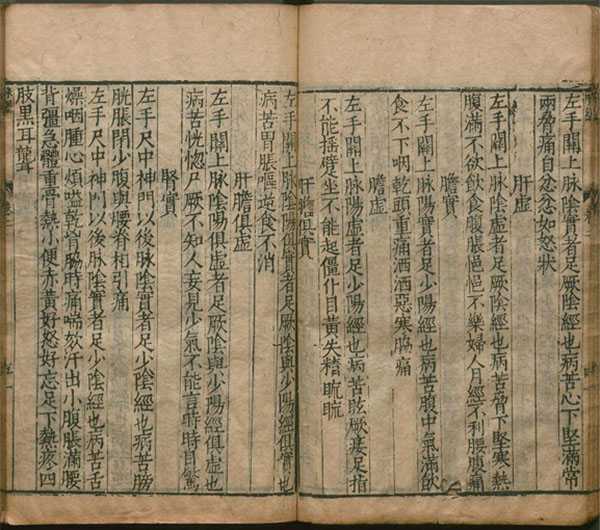 左手關上脉陰實者足厥陰經也病苦心下堅滿常
兩脅痛自忿忿如怒狀
肝虛
左手關上脉陰虛者足厥陰經也病苦脅下堅寒熱
腹滿不欲飲食腹脹悒悒不樂婦人月經不利腰腹痛
膽實
左手關上脉陽實者足少陽經也病苦腹中氣滿飲
食不下咽乾頭重痛洒洒惡寒脇痛
膽虛
左手關上脉陽虛者足少陽經也病苦眩厥痿足指
不能搖躄坐不能起僵仆目黃失精䀮䀮
肝膽俱實
左手關上脉陰陽俱實者足厥陰與少陽經俱實也
病苦胃脹嘔逆食不消
肝膽俱虛
左手關上脉陰陽俱虛者足厥陰與少陽經俱虛也
病苦恍惚尸厥不知人妄見少氣不能言時時自驚
腎實
左手尺中神門以後脉陰實者足少陰經也病苦膀
胱脹閉少腹與腰脊相引痛
左手尺中神門以後脉陰實者足少陰經也病苦舌
燥咽腫心煩嗌乾胷脇時痛喘欬汗出小腹脹滿腰
背彊急體重骨熱小便赤黃好怒好忘足下熱疼四
肢黑耳聾